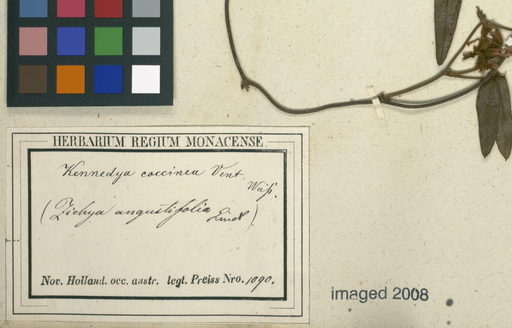 HERBARIUM REGIUM MONACENSE.
Kennedya coccinea Vent.
(Zichya angustifolia Lindl).
Nov. Holland. occ. austr. legt. Preiss Nro. 1090.
imaged 2008